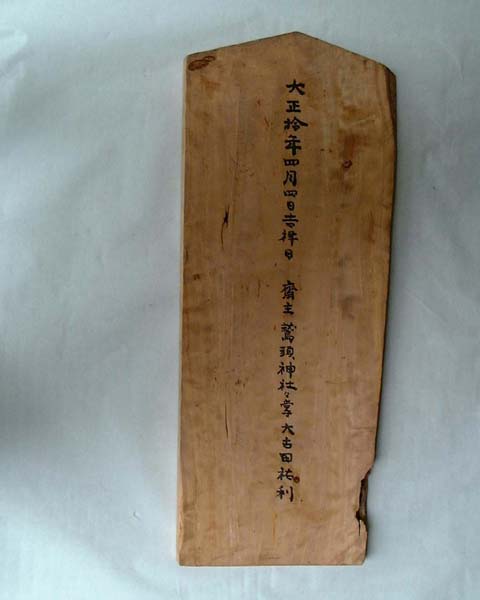 大正拾年四月四日吉祥日 齋主 鷲頭神社々掌 大古田祐利